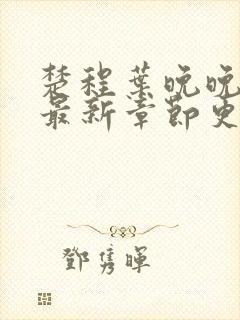 楚程葉晚晚
最新章節更
鄧雋暉